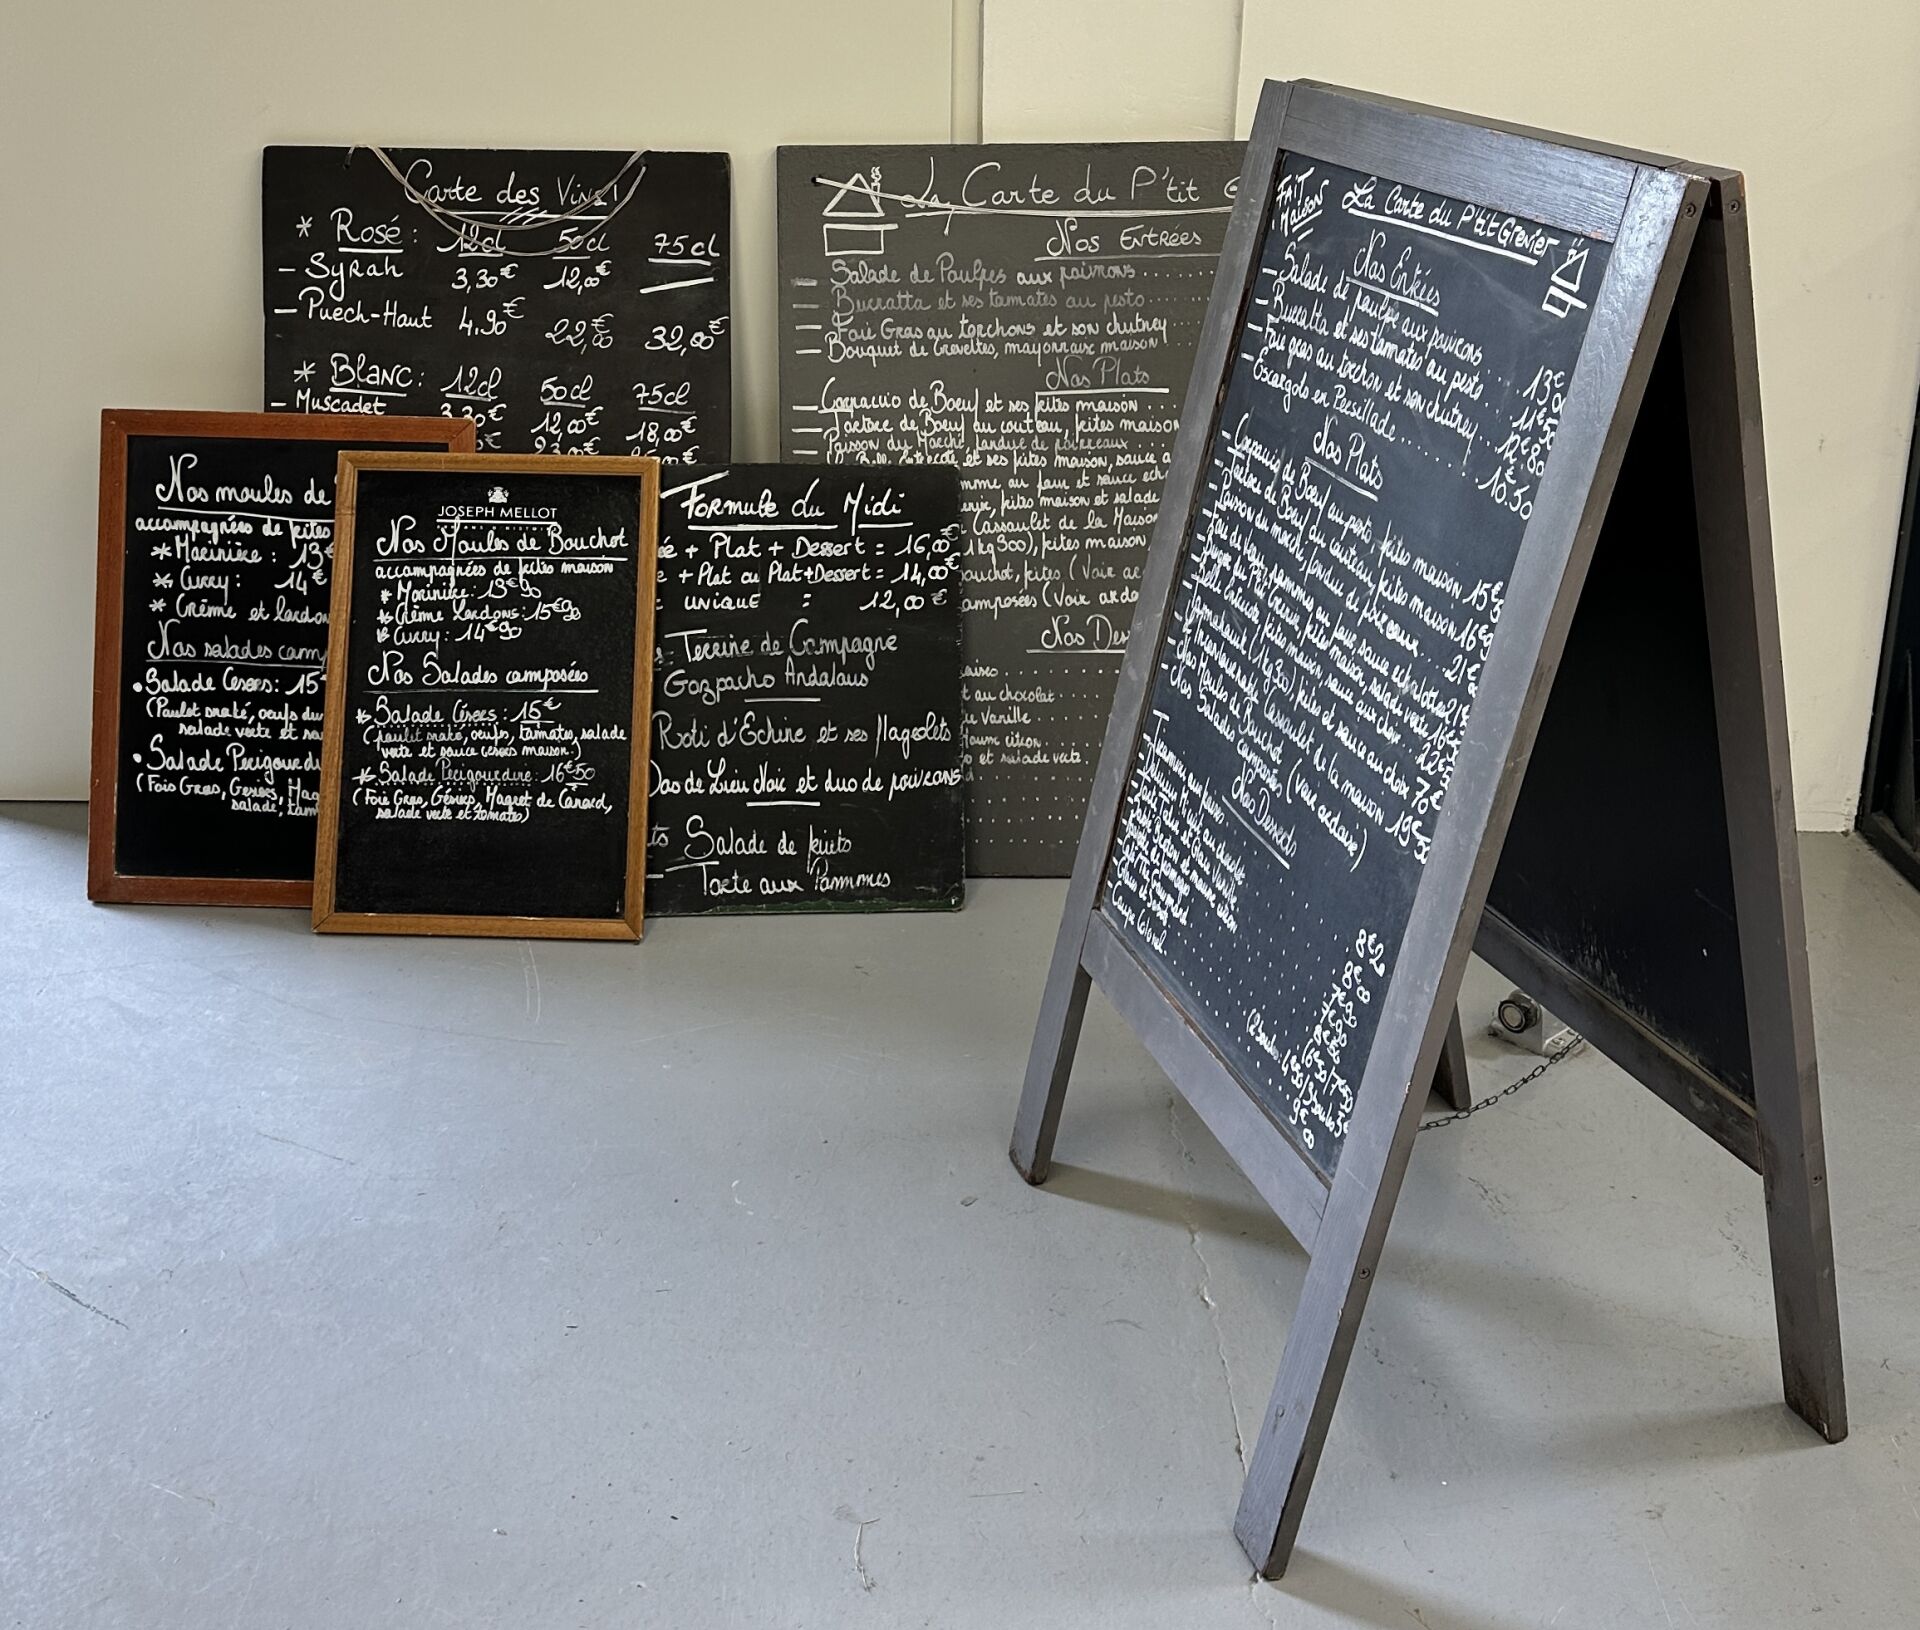 Carte des Vins!
* Rosé : 12cl 50cl 75cl
- Syrah 3,30€ 12,00€
- Puech-Haut 4.90€ 22,00€ 32,00€
* Blanc : 12cl 50cl 75cl
- Muscadet 3,30€ 12,00€ 18,00€
La Carte du P'tit
Nos Entrées
Salade de Poulpes aux poivrons
Burratta et ses tomates au pesto
Foie Gras au torchons et son chutney
Bouquet de Crevettes, mayonnaise maison
Nos Plats
Carpaccio de Boeuf et ses frites maison
Tartare de Boeuf au couteau, frites maison
Poisson du Marché, fondue de poireaux
et ses frites maison, sauce a
au four et sauce ech
frites maison et salade
Cassoulet de la Maison
1kg300), frites maison
frites (Voir
amposées (Voir ardo
Nos Des
au chocolat
Vanille
citron
et salade verte.
Nos moules de
accompagnées de frites
* Marinière : 13€
* Curry : 14€
* Crème et lardon
Nos salades comp
• Salade Cesers : 15
(Poulet snaké, oeufs du
salade verte et sa
• Salade Perigourdi
(Foie Gras, Gesiers, Mag
salade, tom
JOSEPH MELLOT
Nos Moules de Bouchot
accompagnées de frites maison
* Marinière : 13€90
* Crème Lardons : 15€90
* Curry : 14€90
Nos Salades composées
* Salade Césers : 15€
(poulet snaké, oeufs, tomates, salade
verte et sauce cesers maison.)
* Salade Perigourdine : 16€50
(Foie Gras, Gésiers, Magret de Canard,
salade verte et tomates)
Formule du Midi
+ Plat + Dessert = 16,00€
+ Plat ou Plat+Dessert = 14,00€
unique = 12,00€
Terrine de Campagne
Gazpacho Andalous
Roti d'Echine et ses flageolets
Dos de Lieu Noir et duo de poivrons
Salade de fruits
Tarte aux Pommmes
Fait Maison
La Carte du P'tit Grenier
Nos Entrées
- Salade de poulpe aux poivrons 13€
- Burratta et ses tomates au pesto 11€50
- Foie gras au torchon et son chutney 12€80
- Escargots en Persillade 10€50
Nos Plats
- Carpaccio de Boeuf au pesto, frites maison 15€
- Tartare de Boeuf au couteau, frites maison 16€
- Poisson du marché, fondue de poireaux 21€
- Foie de Veau, pommes au four, sauce echalottes 21€
- Burger du P'tit Grenier, frites maison, salade verte 16€
- Belle Entrecote, frites maison, sauce aux choix 22€50
- Tomahawk (1kg300), frites et sauce au choix 70€
- L'Incontournable Cassoulet de la maison 19€50
- Nos Moules de Bouchot
- Nos Salades composées (voir ardoise)
Nos Desserts
- Tiramisu aux fraises 8€20
- Délice Nuit au chocolat 8€00
- Tarte Tatin et Glace Vanille 7€90
- Café/Thé Gourmand
- Coupe Colonel 9€00